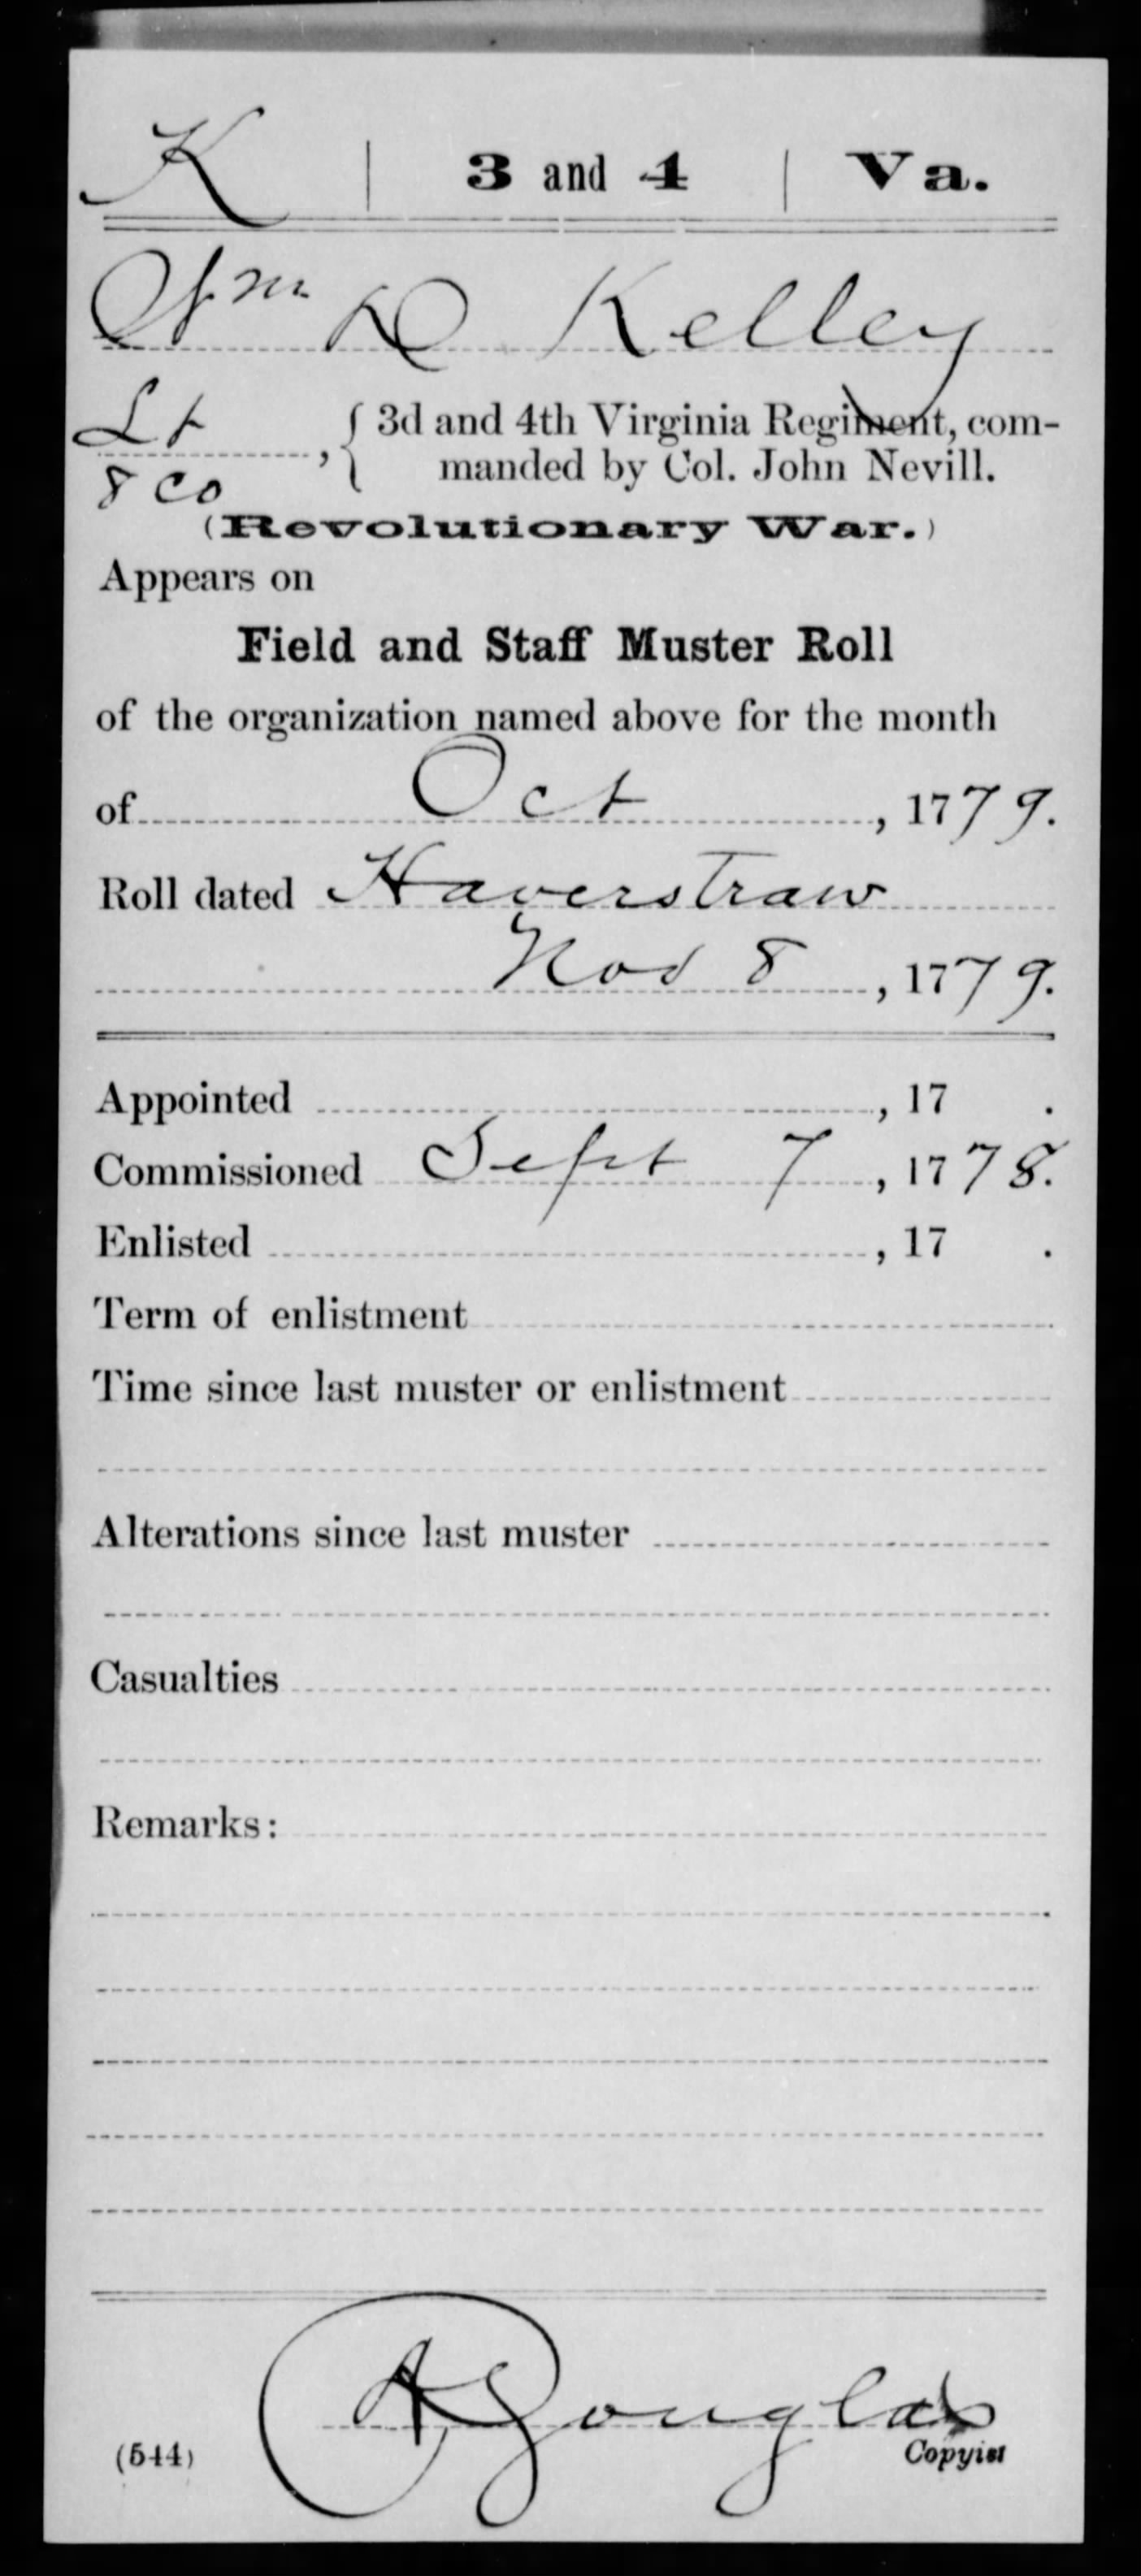 K | 3 and 4 | Va.
Wm D Kelley
Lt, { 3d and 4th Virginia Regiment, com-
8 Co manded by Col. John Nevill.
(Revolutionary War.)
Appears on
Field and Staff Muster Roll
of the organization named above for the month
of Oct, 1779.
Roll dated Haverstraw
Nov 8, 1779.
Appointed , 17 .
Commissioned Sept 7, 1778.
Enlisted , 17 .
Term of enlistment
Time since last muster or enlistment
Alterations since last muster
Casualties
Remarks:
A Douglas
(544) Copyist